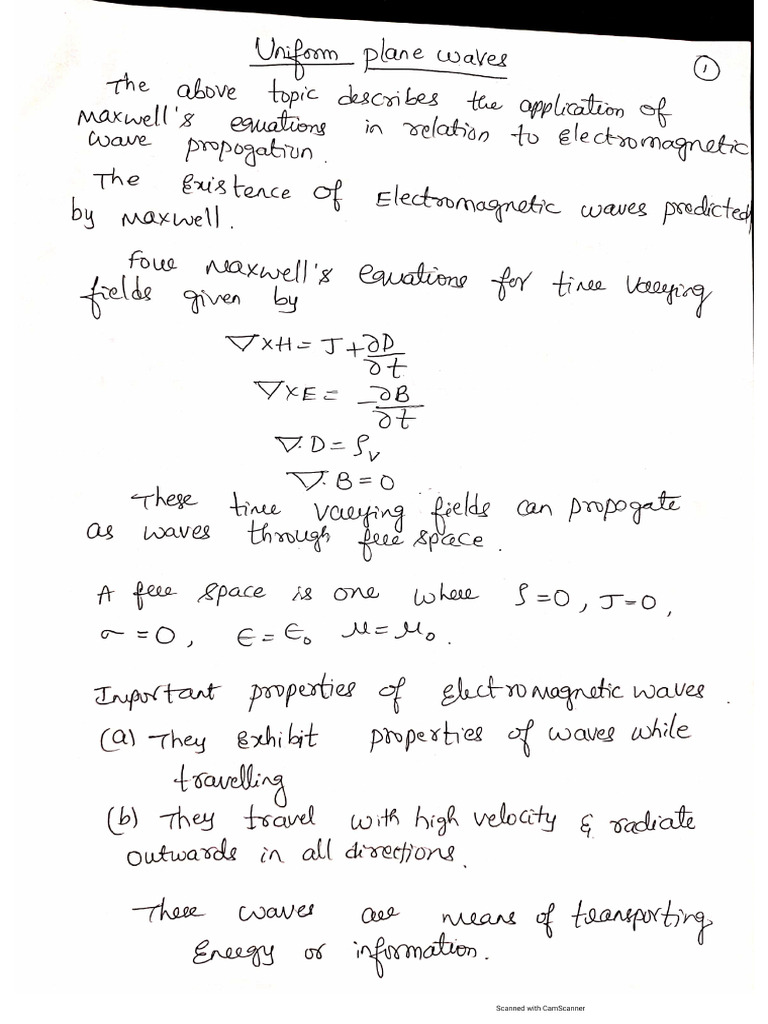 Uniform plane waves
1
The above topic describes the application of
Maxwell's equations in relation to Electromagnetic
wave propogation.
The Existence of Electromagnetic waves predicted
by Maxwell.
Four Maxwell's equations for time varying
fields given by
∇×H = J + ∂D/∂t
∇×E = -∂B/∂t
∇.D = ρv
∇.B = 0
These time varying fields can propogate
as waves through free space.
A free space is one where ρ = 0, J = 0,
σ = 0, ε = ε₀ μ = μ₀.
Important properties of Electromagnetic waves.
(a) They Exhibit properties of waves while
travelling
(b) They travel with high velocity & radiate
outwards in all directions.
These waves are means of transporting
Energy or information.
Scanned with CamScanner